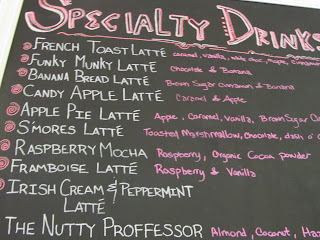 SPECIALTY DRINKS
FRENCH TOAST LATTÉ caramel, vanilla, white choc, maple, cinnamon
FUNKY MUNKY LATTÉ Chocolate & Banana
BANANA BREAD LATTÉ Brown Sugar Cinnamon & Banana
CANDY APPLE LATTÉ Caramel & Apple
APPLE PIE LATTÉ Apple, Caramel, Vanilla, Brown Sugar
S'MORES LATTÉ Toasted Marshmallow, Chocolate, dash o'
RASPBERRY MOCHA Raspberry, Organic Cocoa powder
FRAMBOISE LATTÉ Raspberry & Vanilla
IRISH CREAM & PEPPERMINT
LATTÉ
THE NUTTY PROFFESSOR Almond, Coconut,